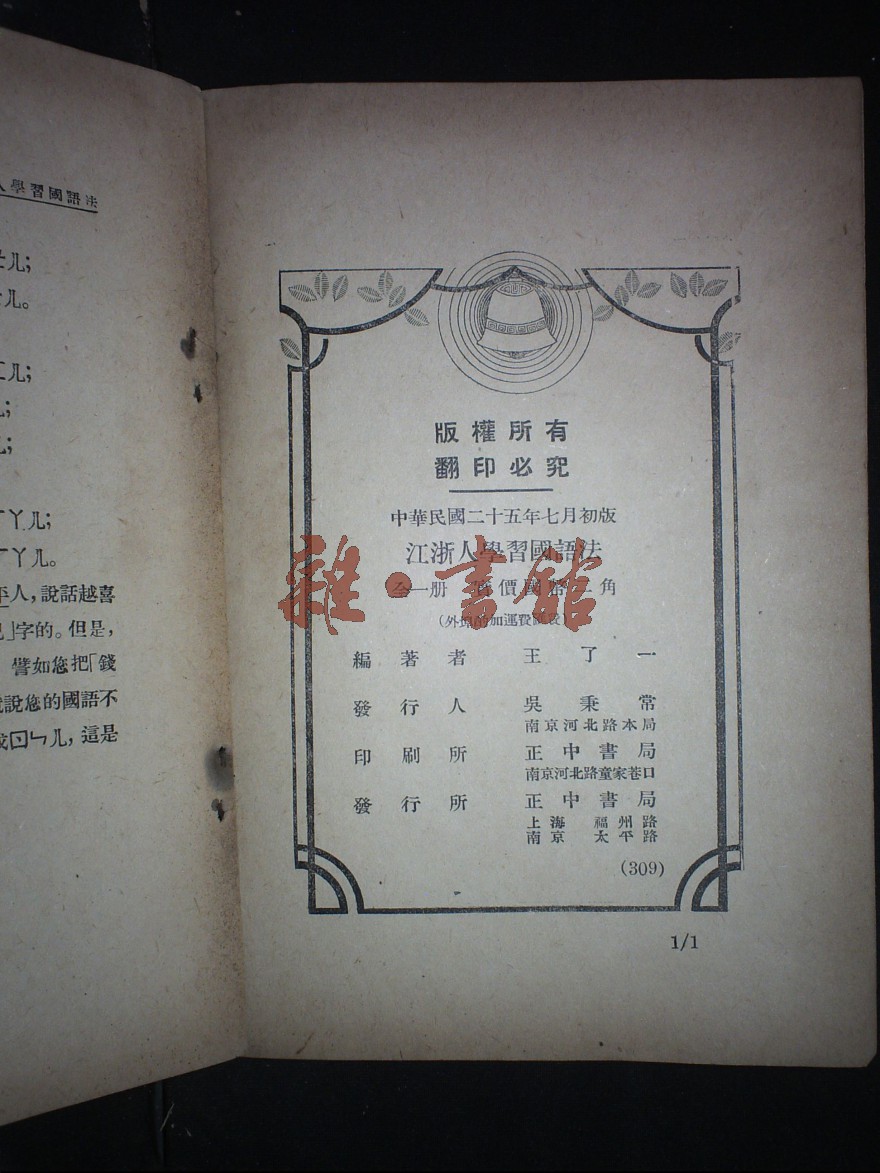 人學習國語法
ㄦ;
ㄦ。
ㄦ;
ㄚㄦ;
ㄚㄦ。
人，說話越喜
」字的。但是，
譬如您把「錢
說您的國語不
ㄣㄦ，這是
版權所有
翻印必究
中華民國二十五年七月初版
江浙人學習國語法
全一册 價國 二角
(外埠 加運費 )
編著者 王了一
發行人 吳秉常
南京河北路本局
印刷所 正中書局
南京河北路童家巷口
發行所 正中書局
上海 福州路
南京 太平路
(309)
1/1
雜·書館